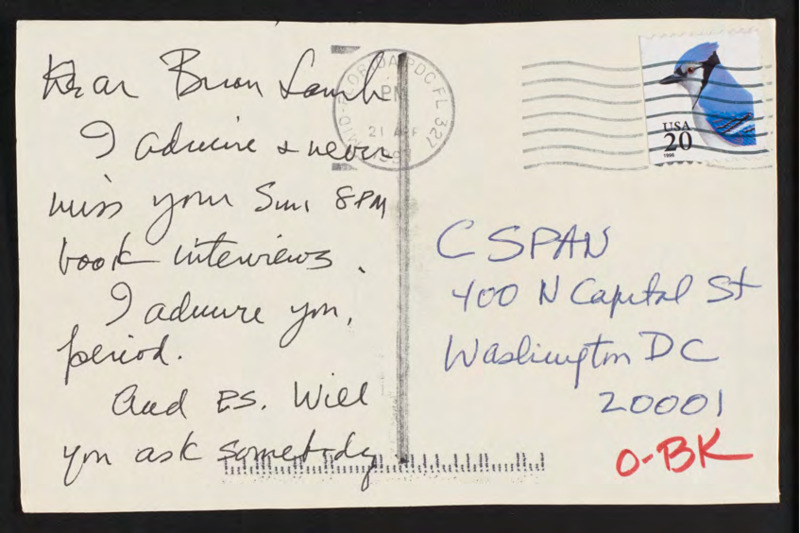 Dear Brian Lamb
I admire & never
miss your Sun, 8PM
book interviews.
I admire you,
period.
And P.S. Will
you ask somebody
MID-FLORIDA PDC FL 327
PM
21
USA
20
1996
CSPAN
400 N Capital St
Washington DC
20001
O-BK